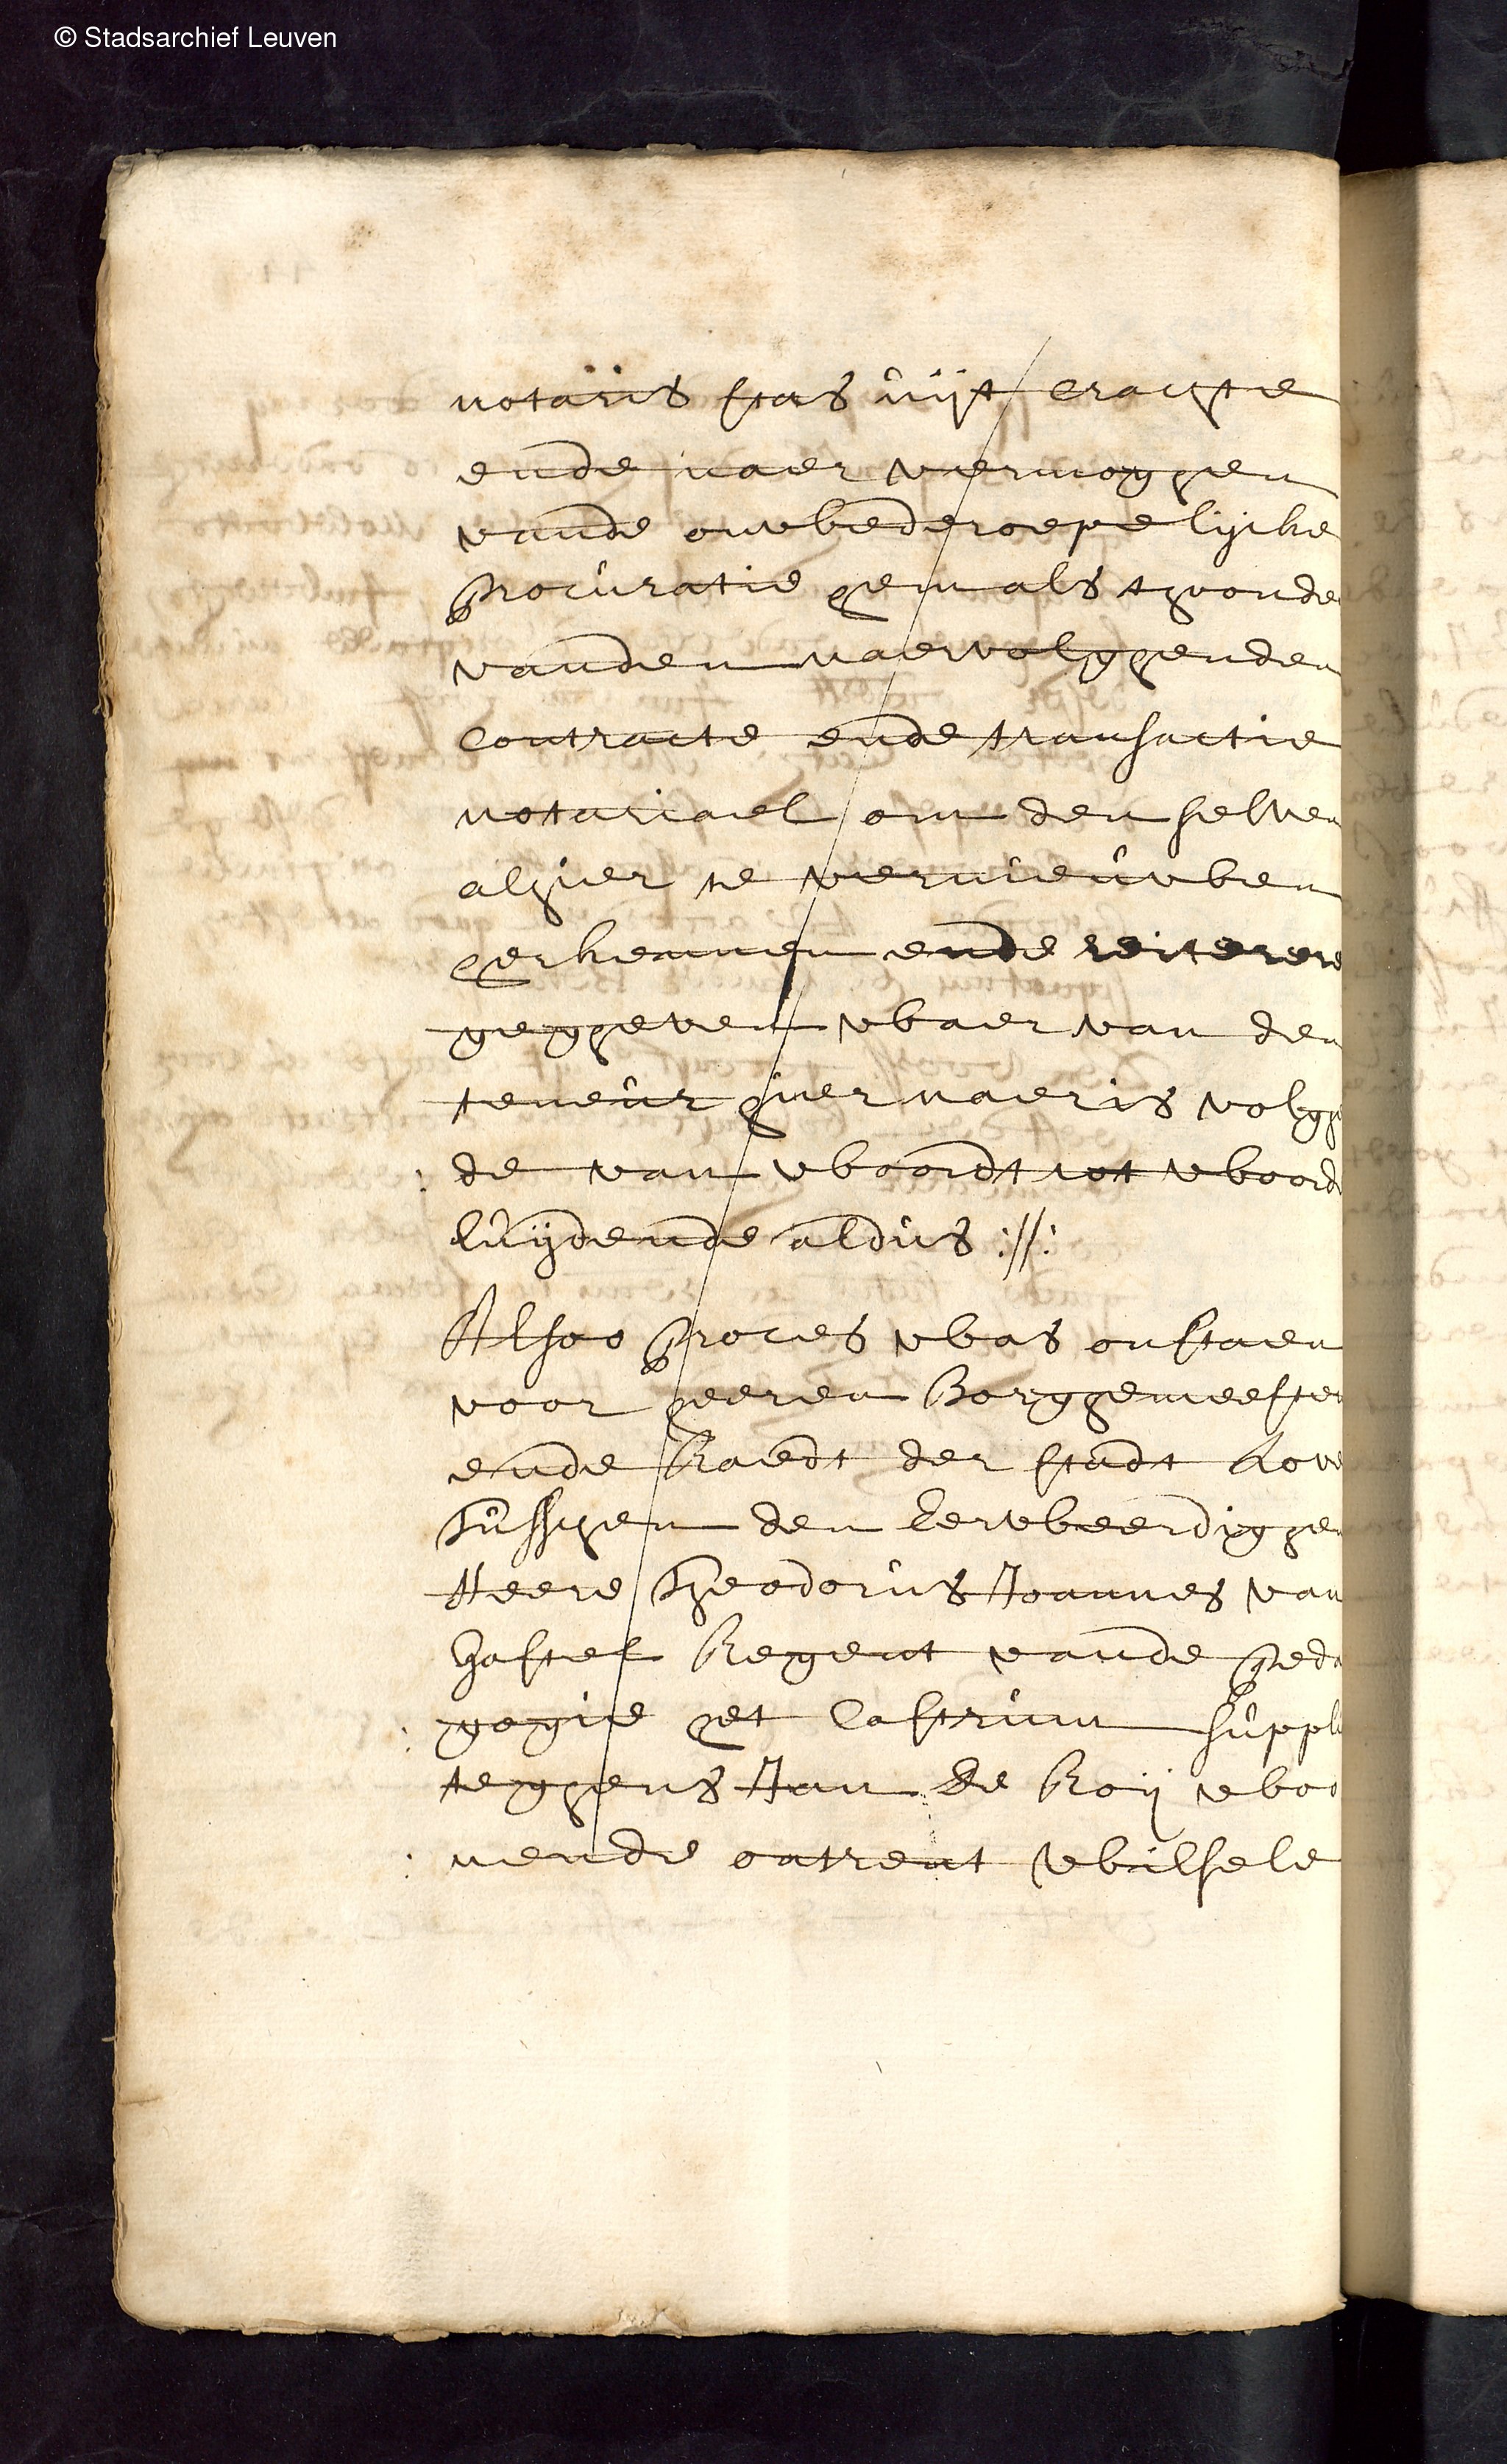 © Stadsarchief Leuven
notaris stas uijt crachte
ende naer vermoghen
vande onwbederoepelijcke
procuratie hem als thoonder
vanden naervolghenden
contracte ende transactie
notariael om den selven
alhier te vernieuwben
herkennen ende reitere
gegheven wbaer van den
teneur hier naer is volgh
de van wboordt tot wboord
luijdende aldus ://:
Alsoo proces wbas onstaen
voor heeren Borghemeester
ende Raedt der stadt Love
Tusschen den Eerwbeerdighen
Heere Theodorus Joannes van
Gastel Regent vande peda
gogie het Castrum suppl
teghens Jan De Roij wboo
nende ontrent Wbilsele